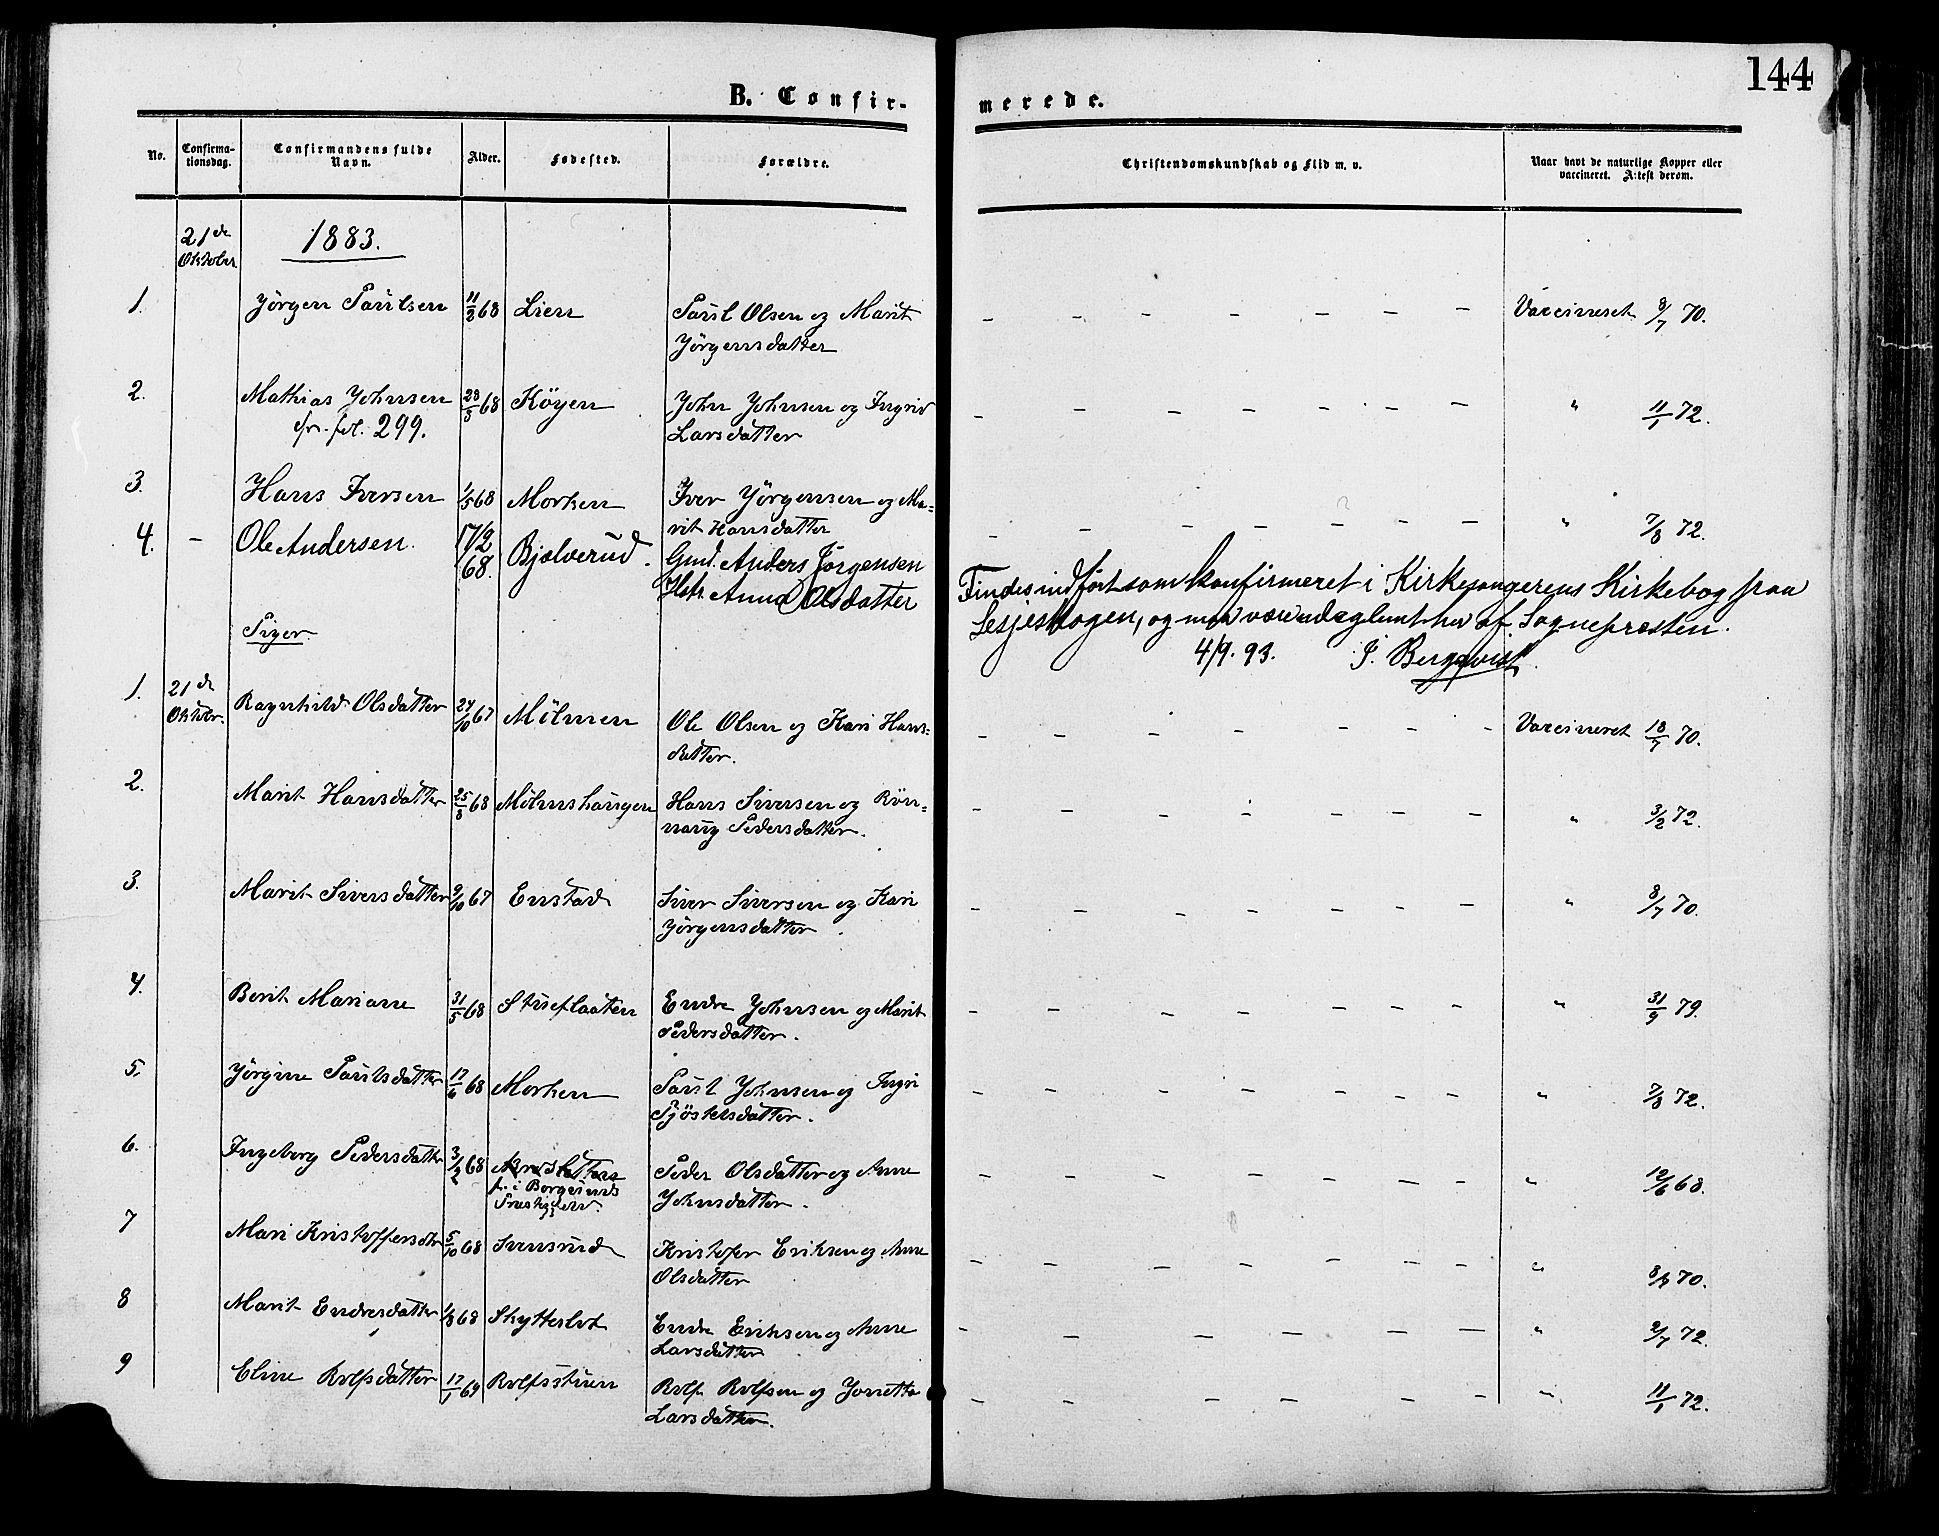 144
B. Confir-
merede.
No.
Confirma-
tionsdag.
Confirmandens fulde
Navn.
Alder.
Fødested.
Forældre.
Christendomskundskab og Flid m. v.
Naar havt de naturlige Kopper eller
vaccineret. Attest derom.
21de
Oktober
1883.
1. Jörgen Paulsen 11/2 68 Lien Paul Olsen og Marit Vaccineret 8/7 70.
Jörgensdatter
2. Mathias Johnsen 28/3 68 Köyen John Johnsen og Ingrid " 11/1 72.
cfr. fol. 299. Larsdatter
3. Hans Iversen 1/5 68 Morken Iver Jörgensen og Ma-
rit Hansdatter " 7/8 72.
4. - Ole Andersen. 17/2 68. Bjølverud. Gmd. Anders Jørgensen
Hstr. Anna Olsdatter
Findes indført som konfirmeret i Kirkesangerens Kirkebog fraa
Lesjeskogen, og maa være udeglemt her af Sognepresten.
4/9. 93. J. Bergqvist.
Piger
1. 21de Oktobr. Ragnhild Olsdatter 24/10 67 Mölmen Ole Olsen og Kari Hans- Vaccineret 18/7 70.
datter.
2. Marit Hansdatter 25/8 68 Mölmshaugen Hans Siversen og Rön- " 3/2 72.
naug Pedersdatter.
3. Marit Siversdatter 9/10 67 Enstad Siver Siversen og Kari " 8/7 70.
Jörgensdatter
4. Berit Marianne 31/5 68 Stueflaaten Endre Johnsen og Marit " 31/9 79.
Pedersdatter.
5. Jörgine Paulsdatter 17/6 68 Morken Paul Johnsen og Ingri " 7/8 72.
Sjöstelsdatter.
6. Ingeborg Pedersdatter 3/2 68 Peder Olsdatter og Anne " 12/6 68.
f. i Borgunds Johnsdatter.
Prestegjeld.
7 Mari Kristoffersdtr 5/10 68 Svensrud Kristofer Eriksen og Anne " 8/8 70.
Olsdatter
8 Marit Endresdatter 1/8 68 Skytteslot Endre Eriksen og Anne " 2/7 72.
Larsdatter
9 Eline Rolfsdatter 17/1 69 Rolfsstuen Rolf Rolfsen og Jonette " 11/1 72.
Larsdatter.